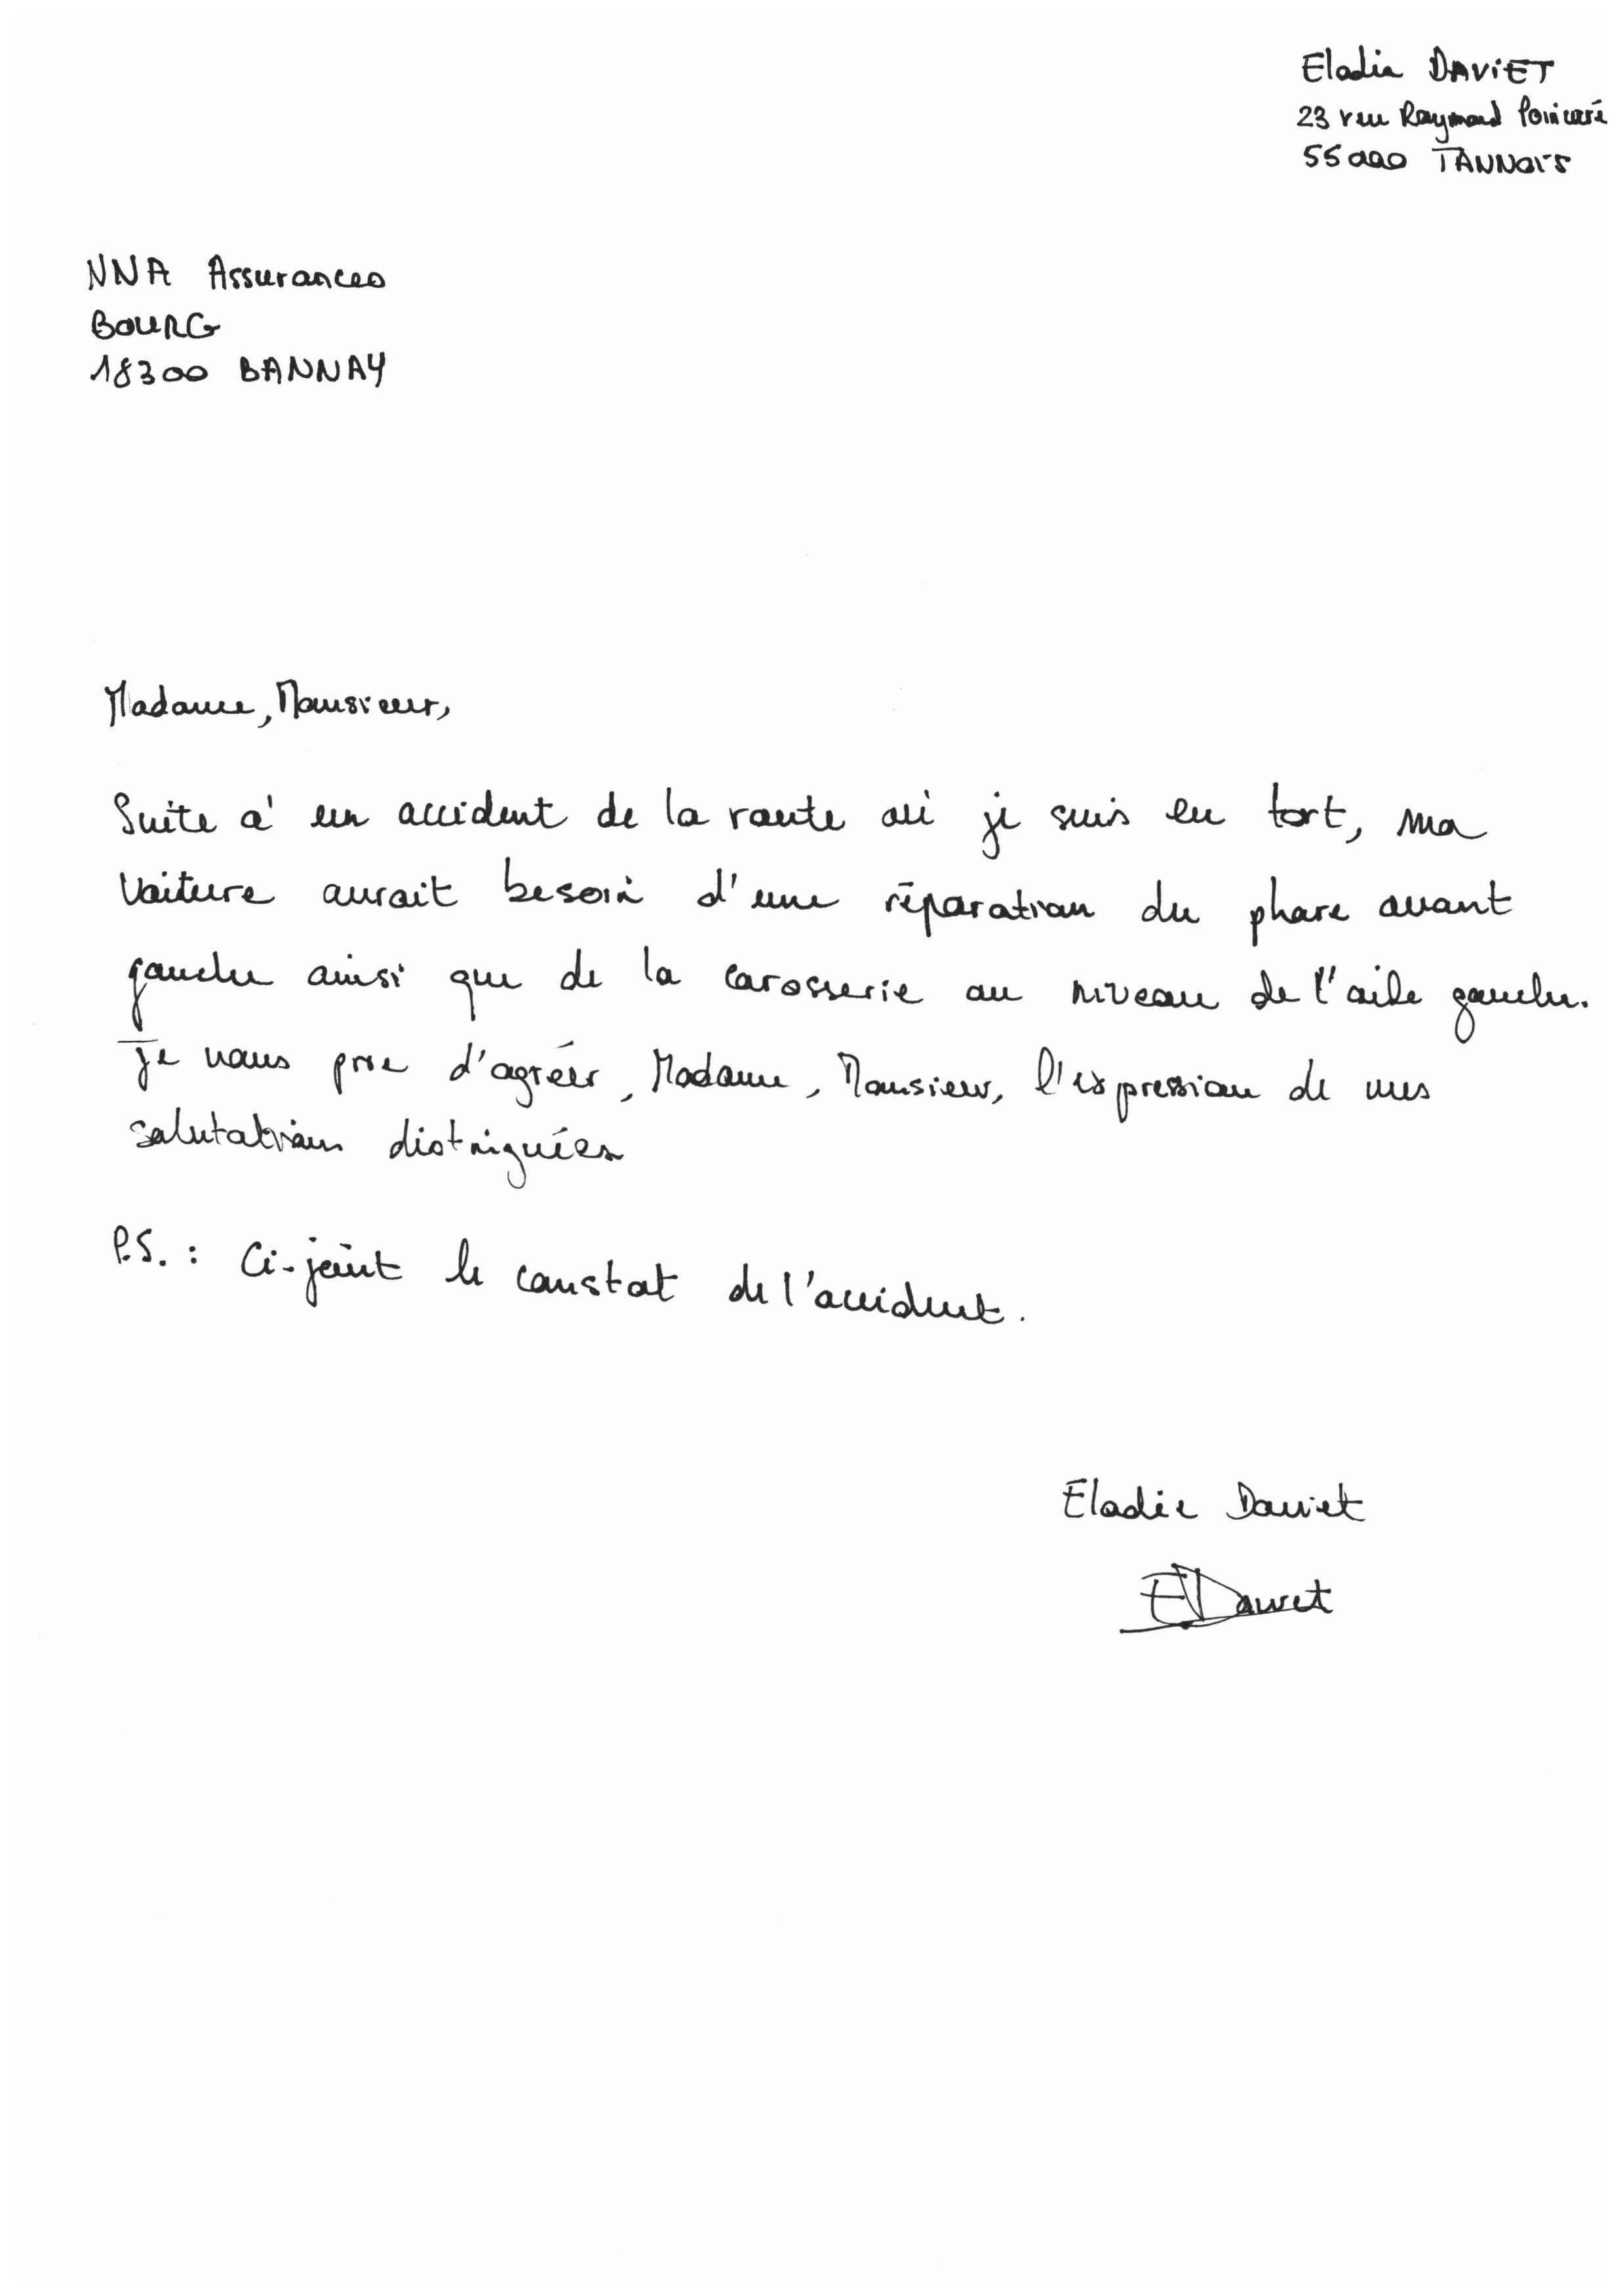 Elodie DAVIET
23 rue Raymond Poincaré
55000 TANNOIS
NNA Assurances
BOURG
18300 BANNAY
Madame, Monsieur,
Suite à un accident de la route où je suis en tort, ma
voiture aurait besoin d'une réparation du phare avant
gauche ainsi que de la carosserie au niveau de l'aile gauche.
Je vous prie d'agréer, Madame, Monsieur, l'expression de mes
salutations distinguées
P.S. : Ci-joint le constat de l'accident.
Elodie Daviet
EDaviet